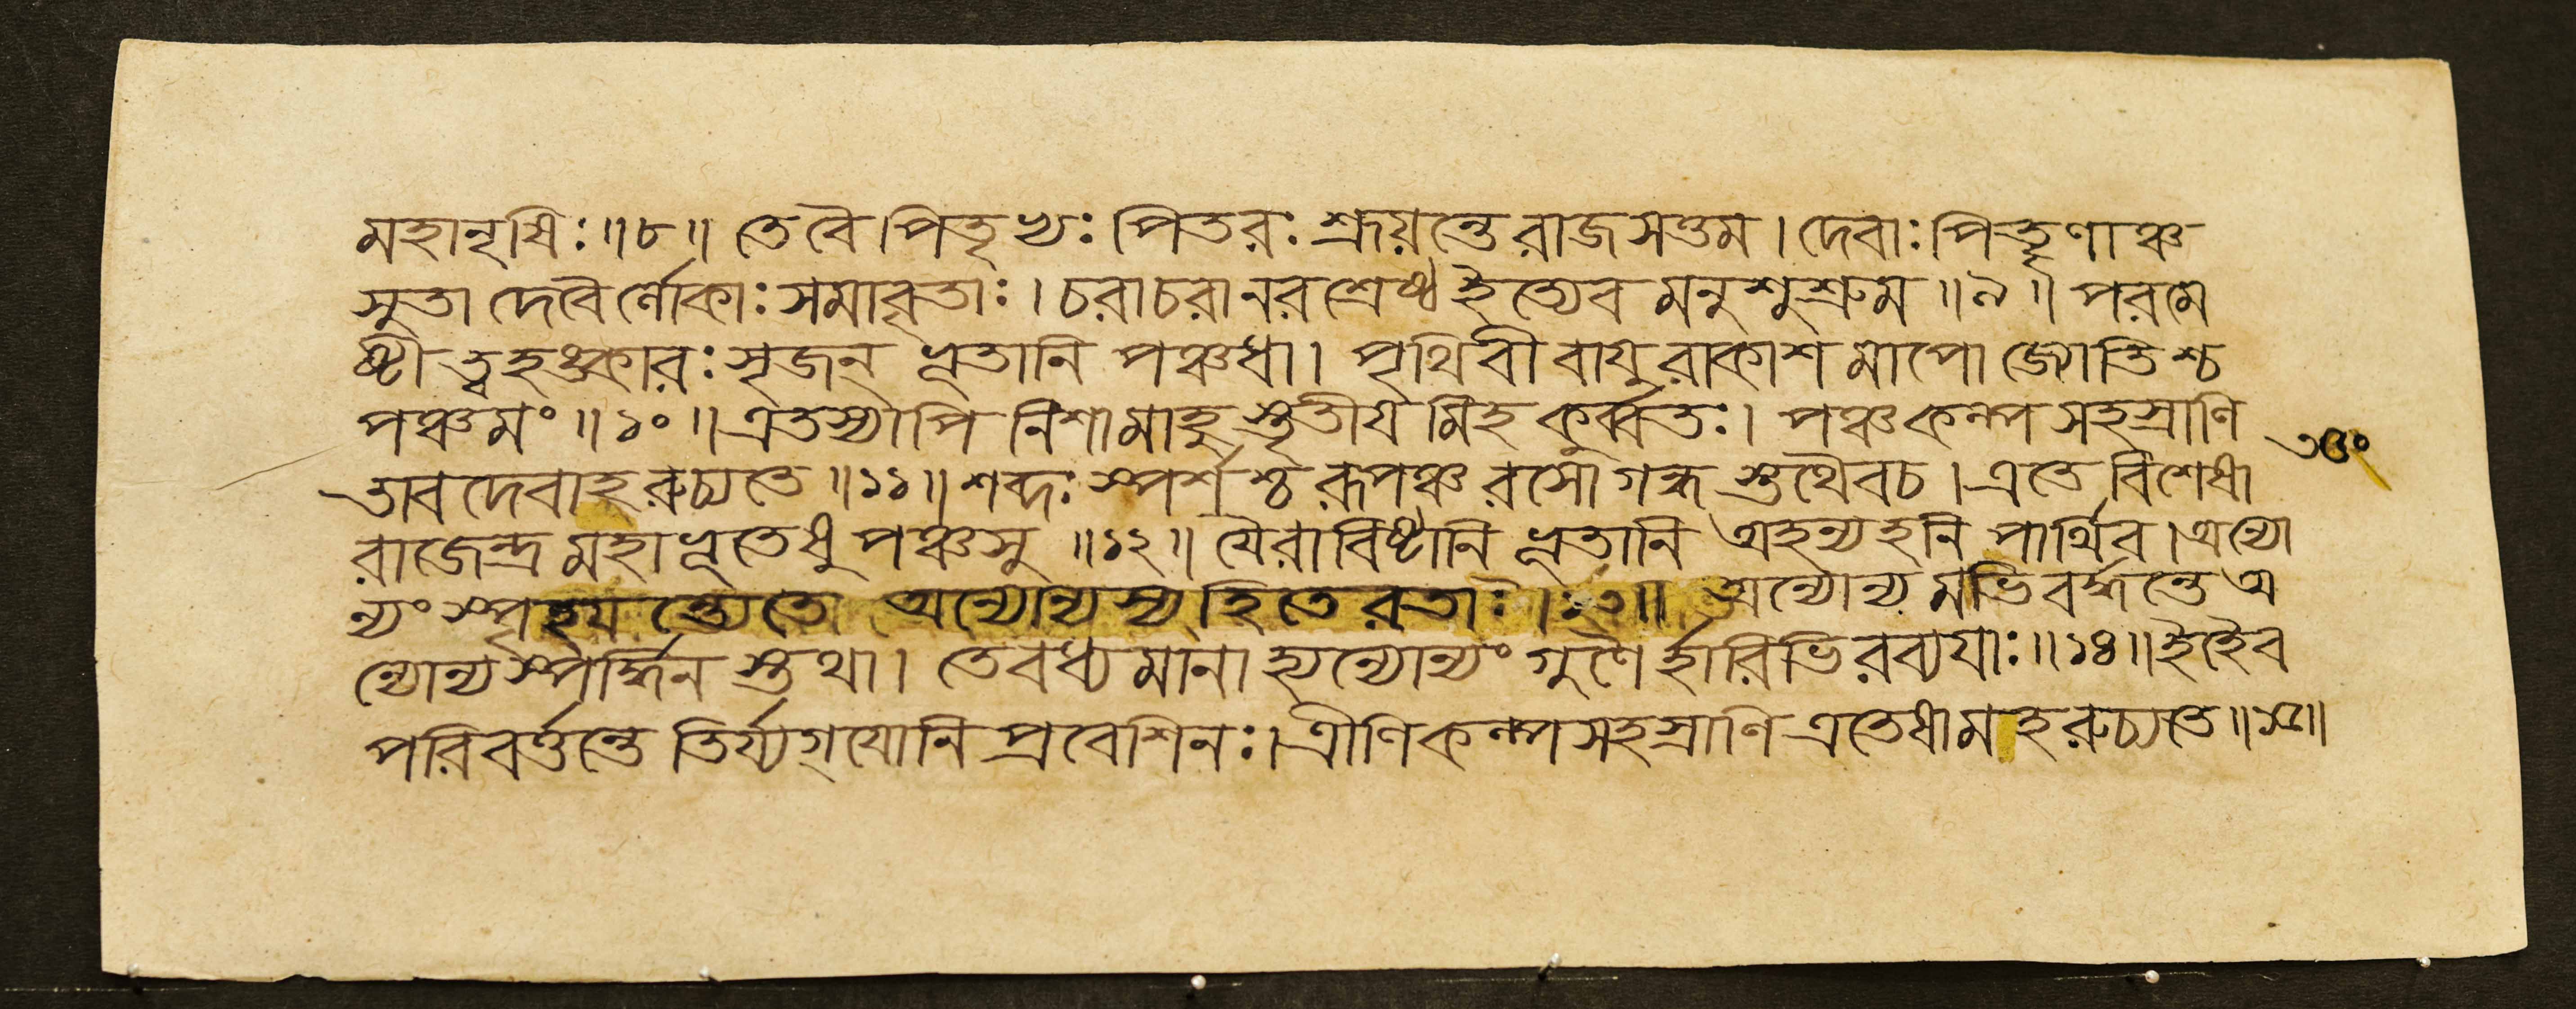 মহানৃষিঃ॥৮॥ তে বৈ পিতৃভ্যঃ পিতরঃ শ্রূয়ন্তে রাজসত্তম। দেবাঃ পিতৄণাঞ্চ
সুতা দেবৈর্লোকাঃ সমাবৃতাঃ। চরাচরা নরশ্রেষ্ঠ ইত্যেব মনুশুশ্রুম॥৯॥ পরমে
ষ্ঠী ত্বহঙ্কারঃ সৃজন্ ভূতানি পঞ্চধা। পৃথিবী বায়ুরাকাশ মাপো জ্যোতিশ্চ
পঞ্চমং॥১০॥ এতস্যাপি নিশামাহু স্তৃতীয় মিহ কুর্ব্বতঃ। পঞ্চকল্প সহস্রাণি
তাবদেবাহরুচ্যতে॥১১॥ শব্দঃ স্পর্শশ্চ রূপঞ্চ রসো গন্ধ স্তথৈবচ। এতে বিশেষা
৩৫০
রাজেন্দ্র মহাভূতেষু পঞ্চসু॥১২॥ যৈরাবিষ্টানি ভূতানি অহন্যহনি পার্থিব। অন্যো
ন্যং স্পৃহয়ন্ত্যেতে অন্যোন্যস্য হিতে রতাঃ।১৩॥ অন্যোন্য মভিবর্দ্ধন্তে অ
ন্যোন্যস্পর্দ্ধিন স্তথা। তে বধ্যমানা হ্যন্যোন্যং গুণৈ র্হারিভিরব্যয়াঃ॥১৪॥ ইহৈব
পরিবর্ত্তন্তে তির্য্যগ্‌যোনি প্রবেশিনঃ। ত্রীণি কল্প সহস্রাণি এতেষামহরুচ্যতে॥১৫॥